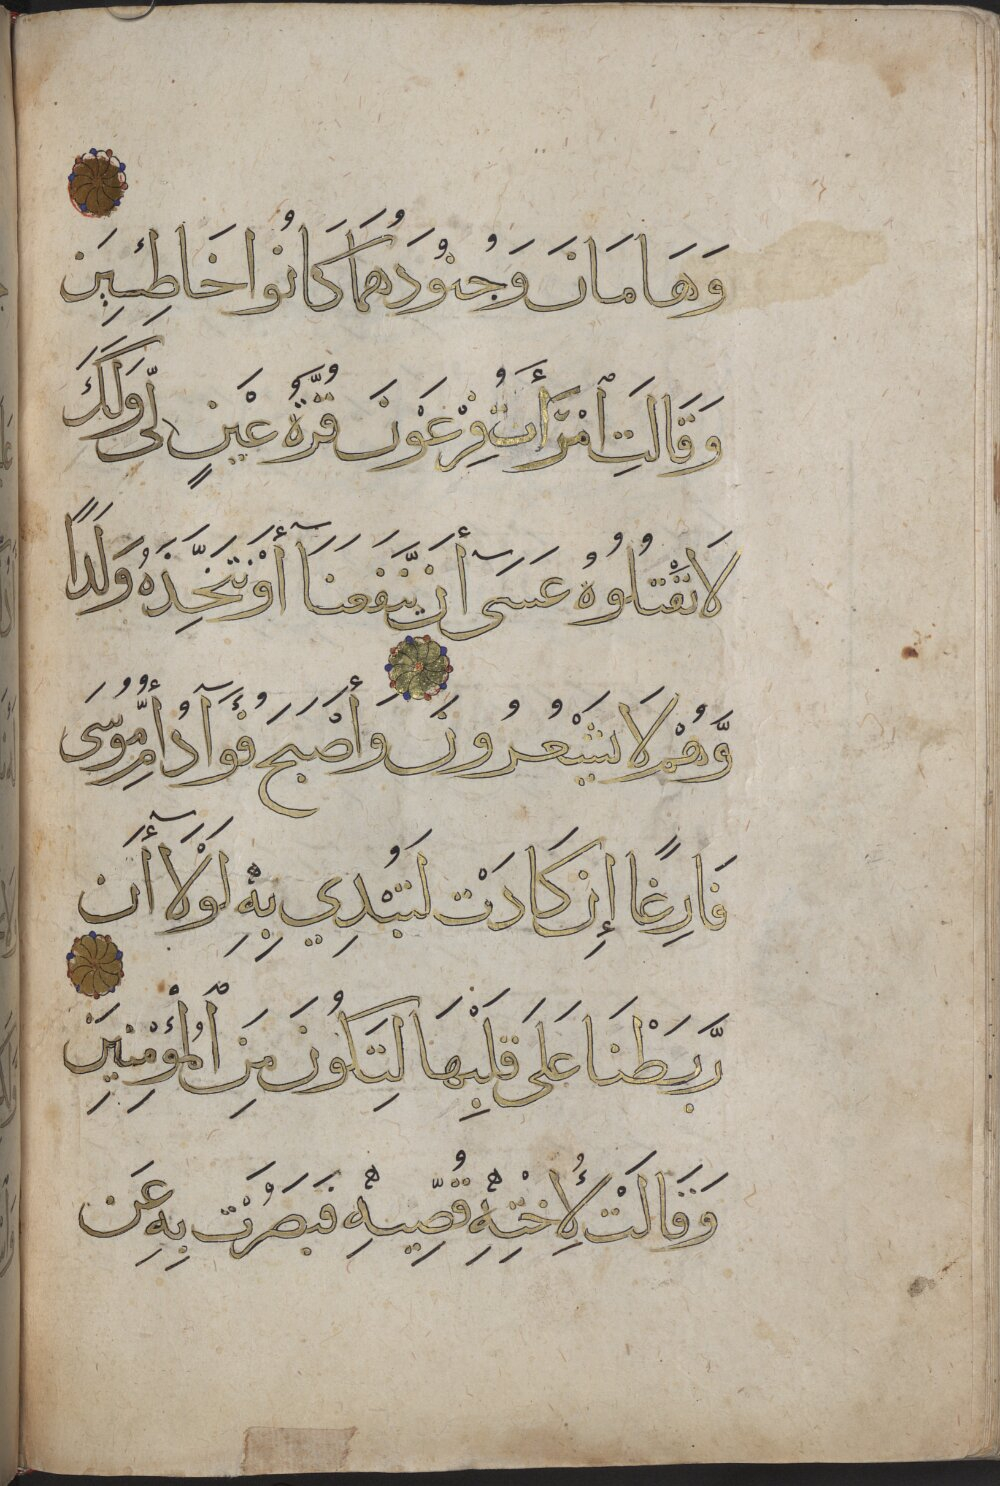 وَهَامَانَ وَجُنُودَهُمَا كَانُوا خَاطِئِينَ
وَقَالَتِ ٱمْرَأَتُ فِرْعَوْنَ قُرَّةُ عَيْنٍ لِّى وَلَكَ
لَا تَقْتُلُوهُ عَسَىٓ أَن يَّنفَعَنَآ أَوْ نَتَّخِذَهُ وَلَدًا
وَّهُمْ لَا يَشْعُرُونَ وَأَصْبَحَ فُؤَآدُ أُمِّ مُوسَى
فَارِغًا إِن كَادَتْ لَتُبْدِي بِهِ لَوْلَآ أَن
رَّبَطْنَا عَلَى قَلْبِهَا لِتَكُونَ مِنَ ٱلْمُؤْمِنِينَ
وَقَالَتْ لِأُخْتِهِ قُصِّيهِ فَبَصُرَتْ بِهِ عَن